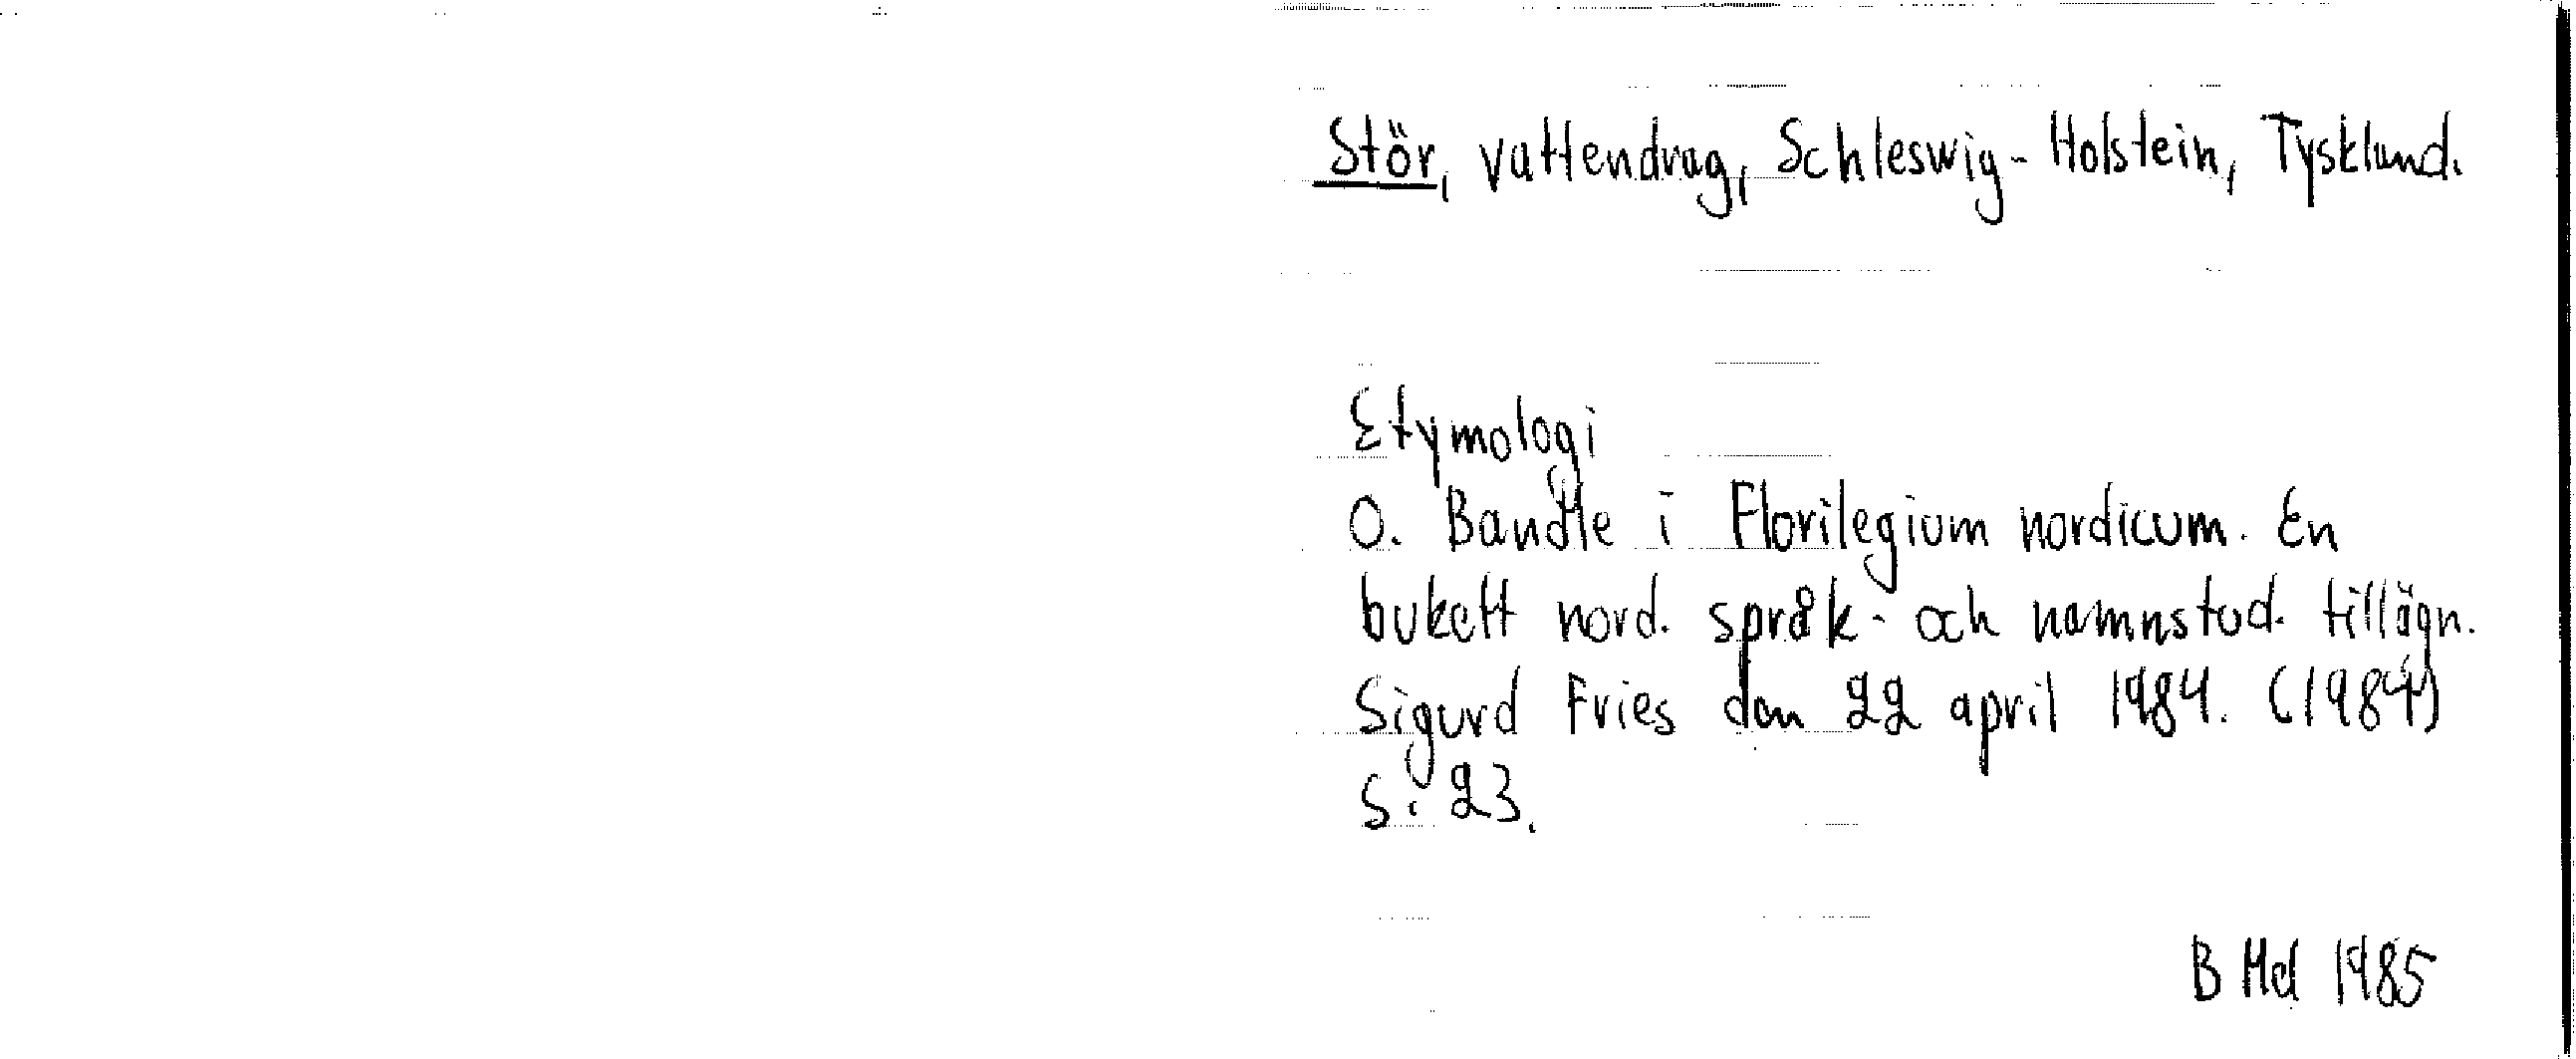 Stör, vattendrag, Schleswig-Holstein, Tyskland.
Etymologi
O. Bandle i Florilegium nordicum. En
bukett nord. språk- och namnstud. tillägn.
Sigurd Fries den 22 april 1984. (1984)
s. 23.
B Hel 1985